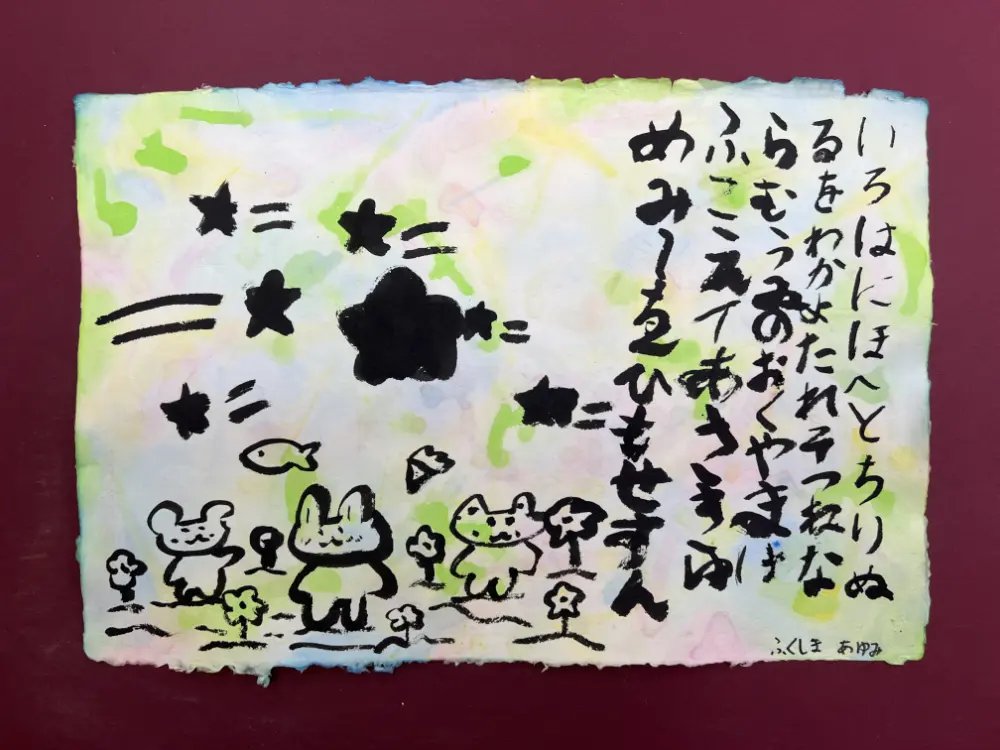 いろはにほへとちりぬ
るをわかよたれそつねな
らむうゐのおくやまけ
ふこえてあさきゆ
めみしゑひもせすん
ふくしま あゆみ